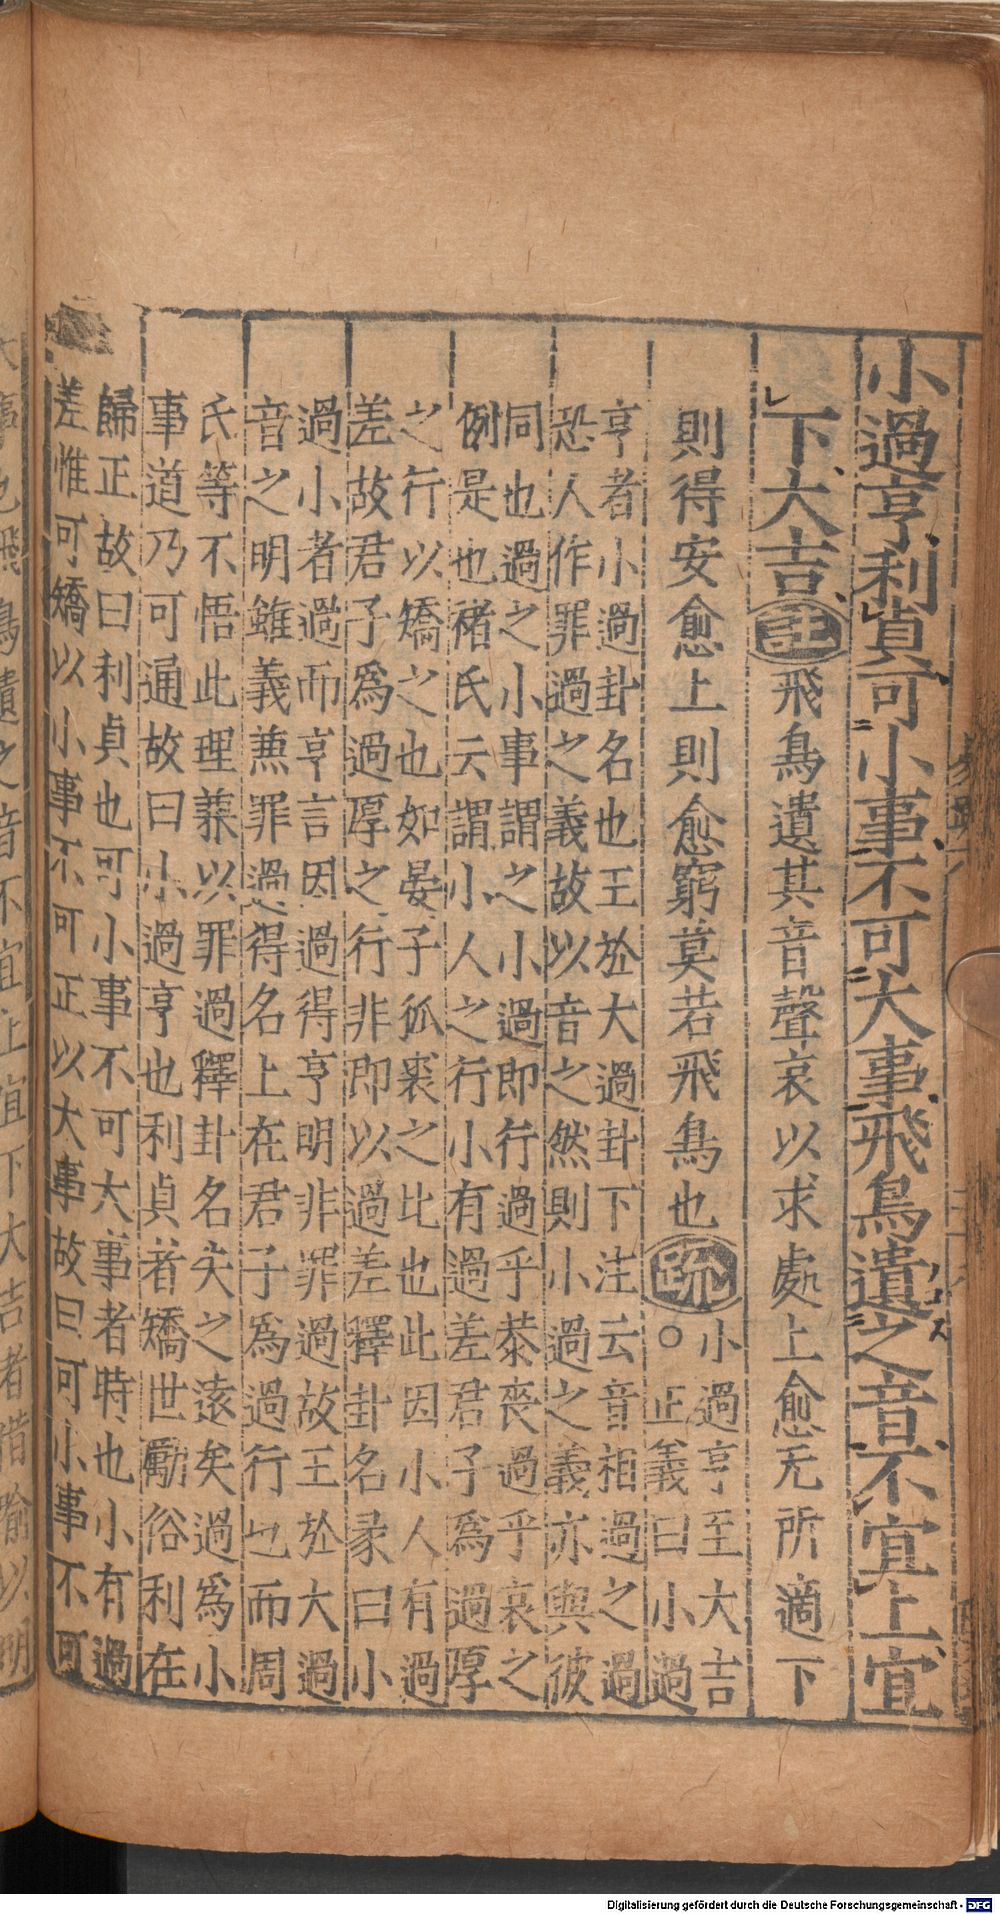 小過亨利貞可小事不可大事飛鳥遺之音不宜上宜
下大吉註飛鳥遺其音聲哀以求處上愈无所適下
則得安愈上則愈窮莫若飛鳥也疏小過亨至大吉
○正義曰小過
亨者小過卦名也王於大過卦下注云音相過之過
恐人作罪過之義故以音之然則小過之義亦與彼
同也過之小事謂之小過即行過乎恭喪過乎哀之
例是也褚氏云謂小人之行小有過差君子爲過厚
之行以矯之也如晏子狐裘之比也此因小人有過
差故君子爲過厚之行非即以過差釋卦名彖曰小
過小者過而亨言因過得亨明非罪過故王於大過
音之明雖義兼罪過得名上在君子爲過行也而周
氏等不悟此理兼以罪過釋卦名失之遠矣過爲小
事道乃可通故曰小過亨也利貞者矯世勵俗利在
歸正故曰利貞也可小事不可大事者時也小有過
差惟可矯以小事不可正以大事故曰可小事不可
大事也飛鳥遺之音不宜上宜下大吉者借喻以明
Digitalisierung gefördert durch die Deutsche Forschungsgemeinschaft - DFG